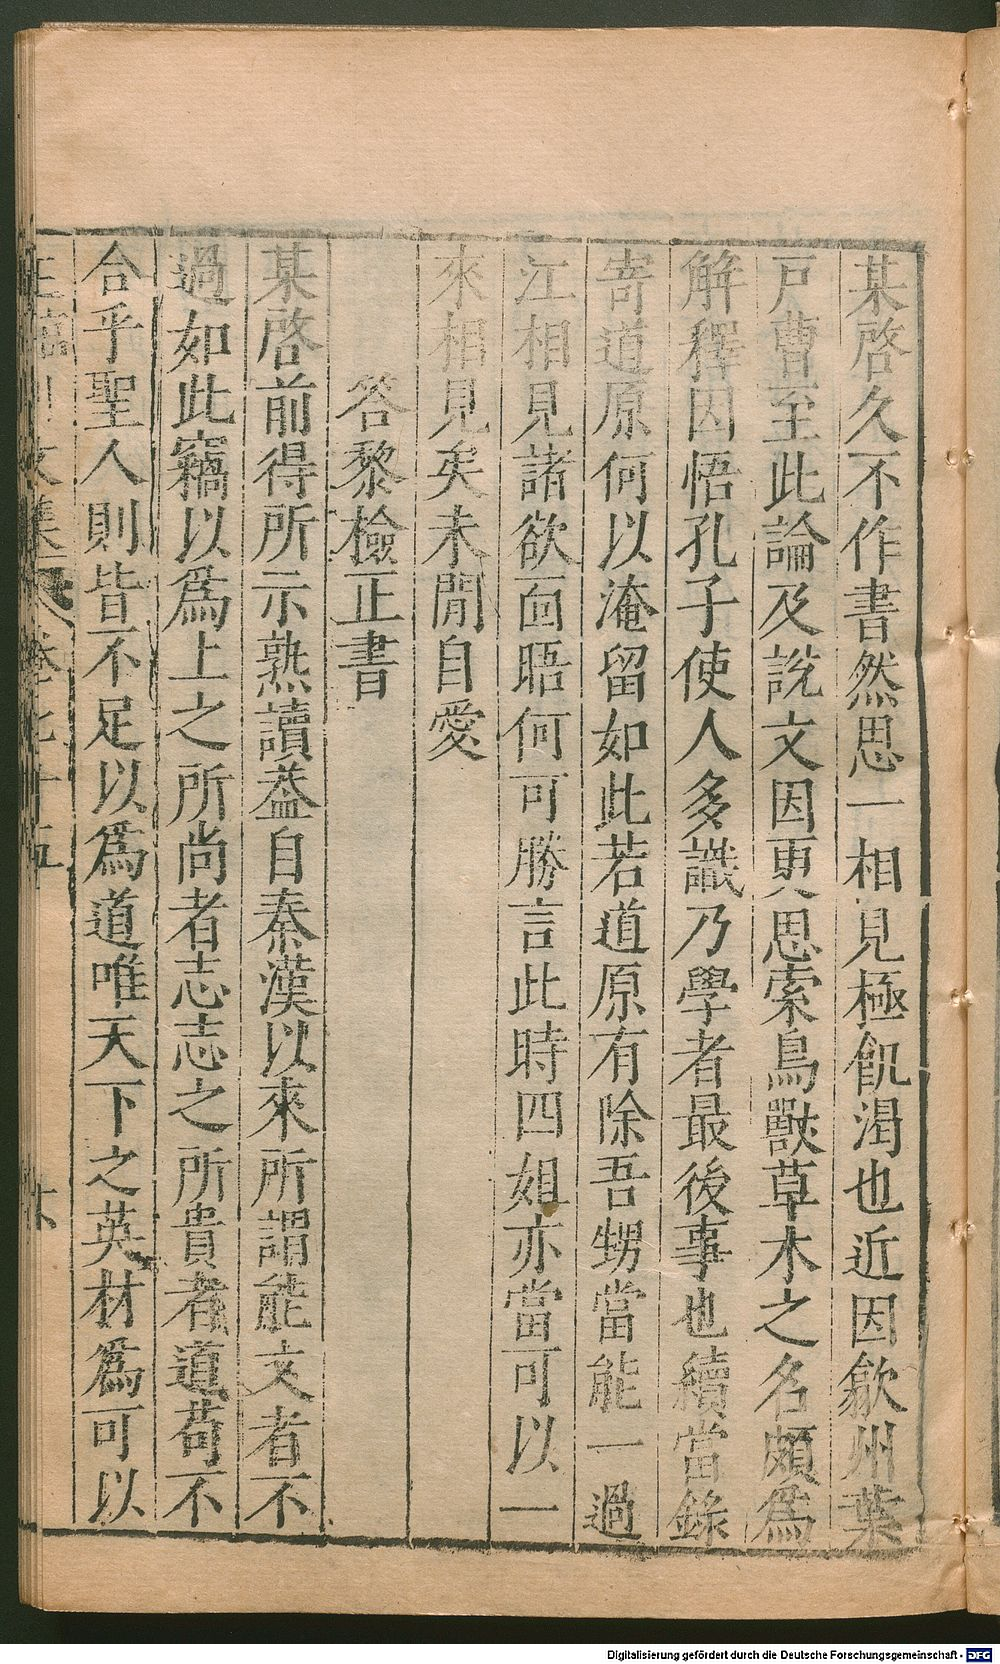 某啓久不作書然思一相見極飢渴也近因歙州葉
戸曹至此論及說文因更思索鳥獸草木之名頗爲
解釋因悟孔子使人多識乃學者最後事也續當錄
寄道原何以淹留如此若道原有除吾甥當能一過
江相見諸欲面晤何可勝言此時四姐亦當可以一
來相見矣未閒自愛
答黎檢正書
某啓前得所示熟讀葢自秦漢以來所謂能文者不
過如此竊以爲上之所尚者志志之所貴者道苟不
合乎聖人則皆不足以爲道唯天下之英材爲可以
王臨川文集 卷七十五
Digitalisierung gefördert durch die Deutsche Forschungsgemeinschaft - DFG